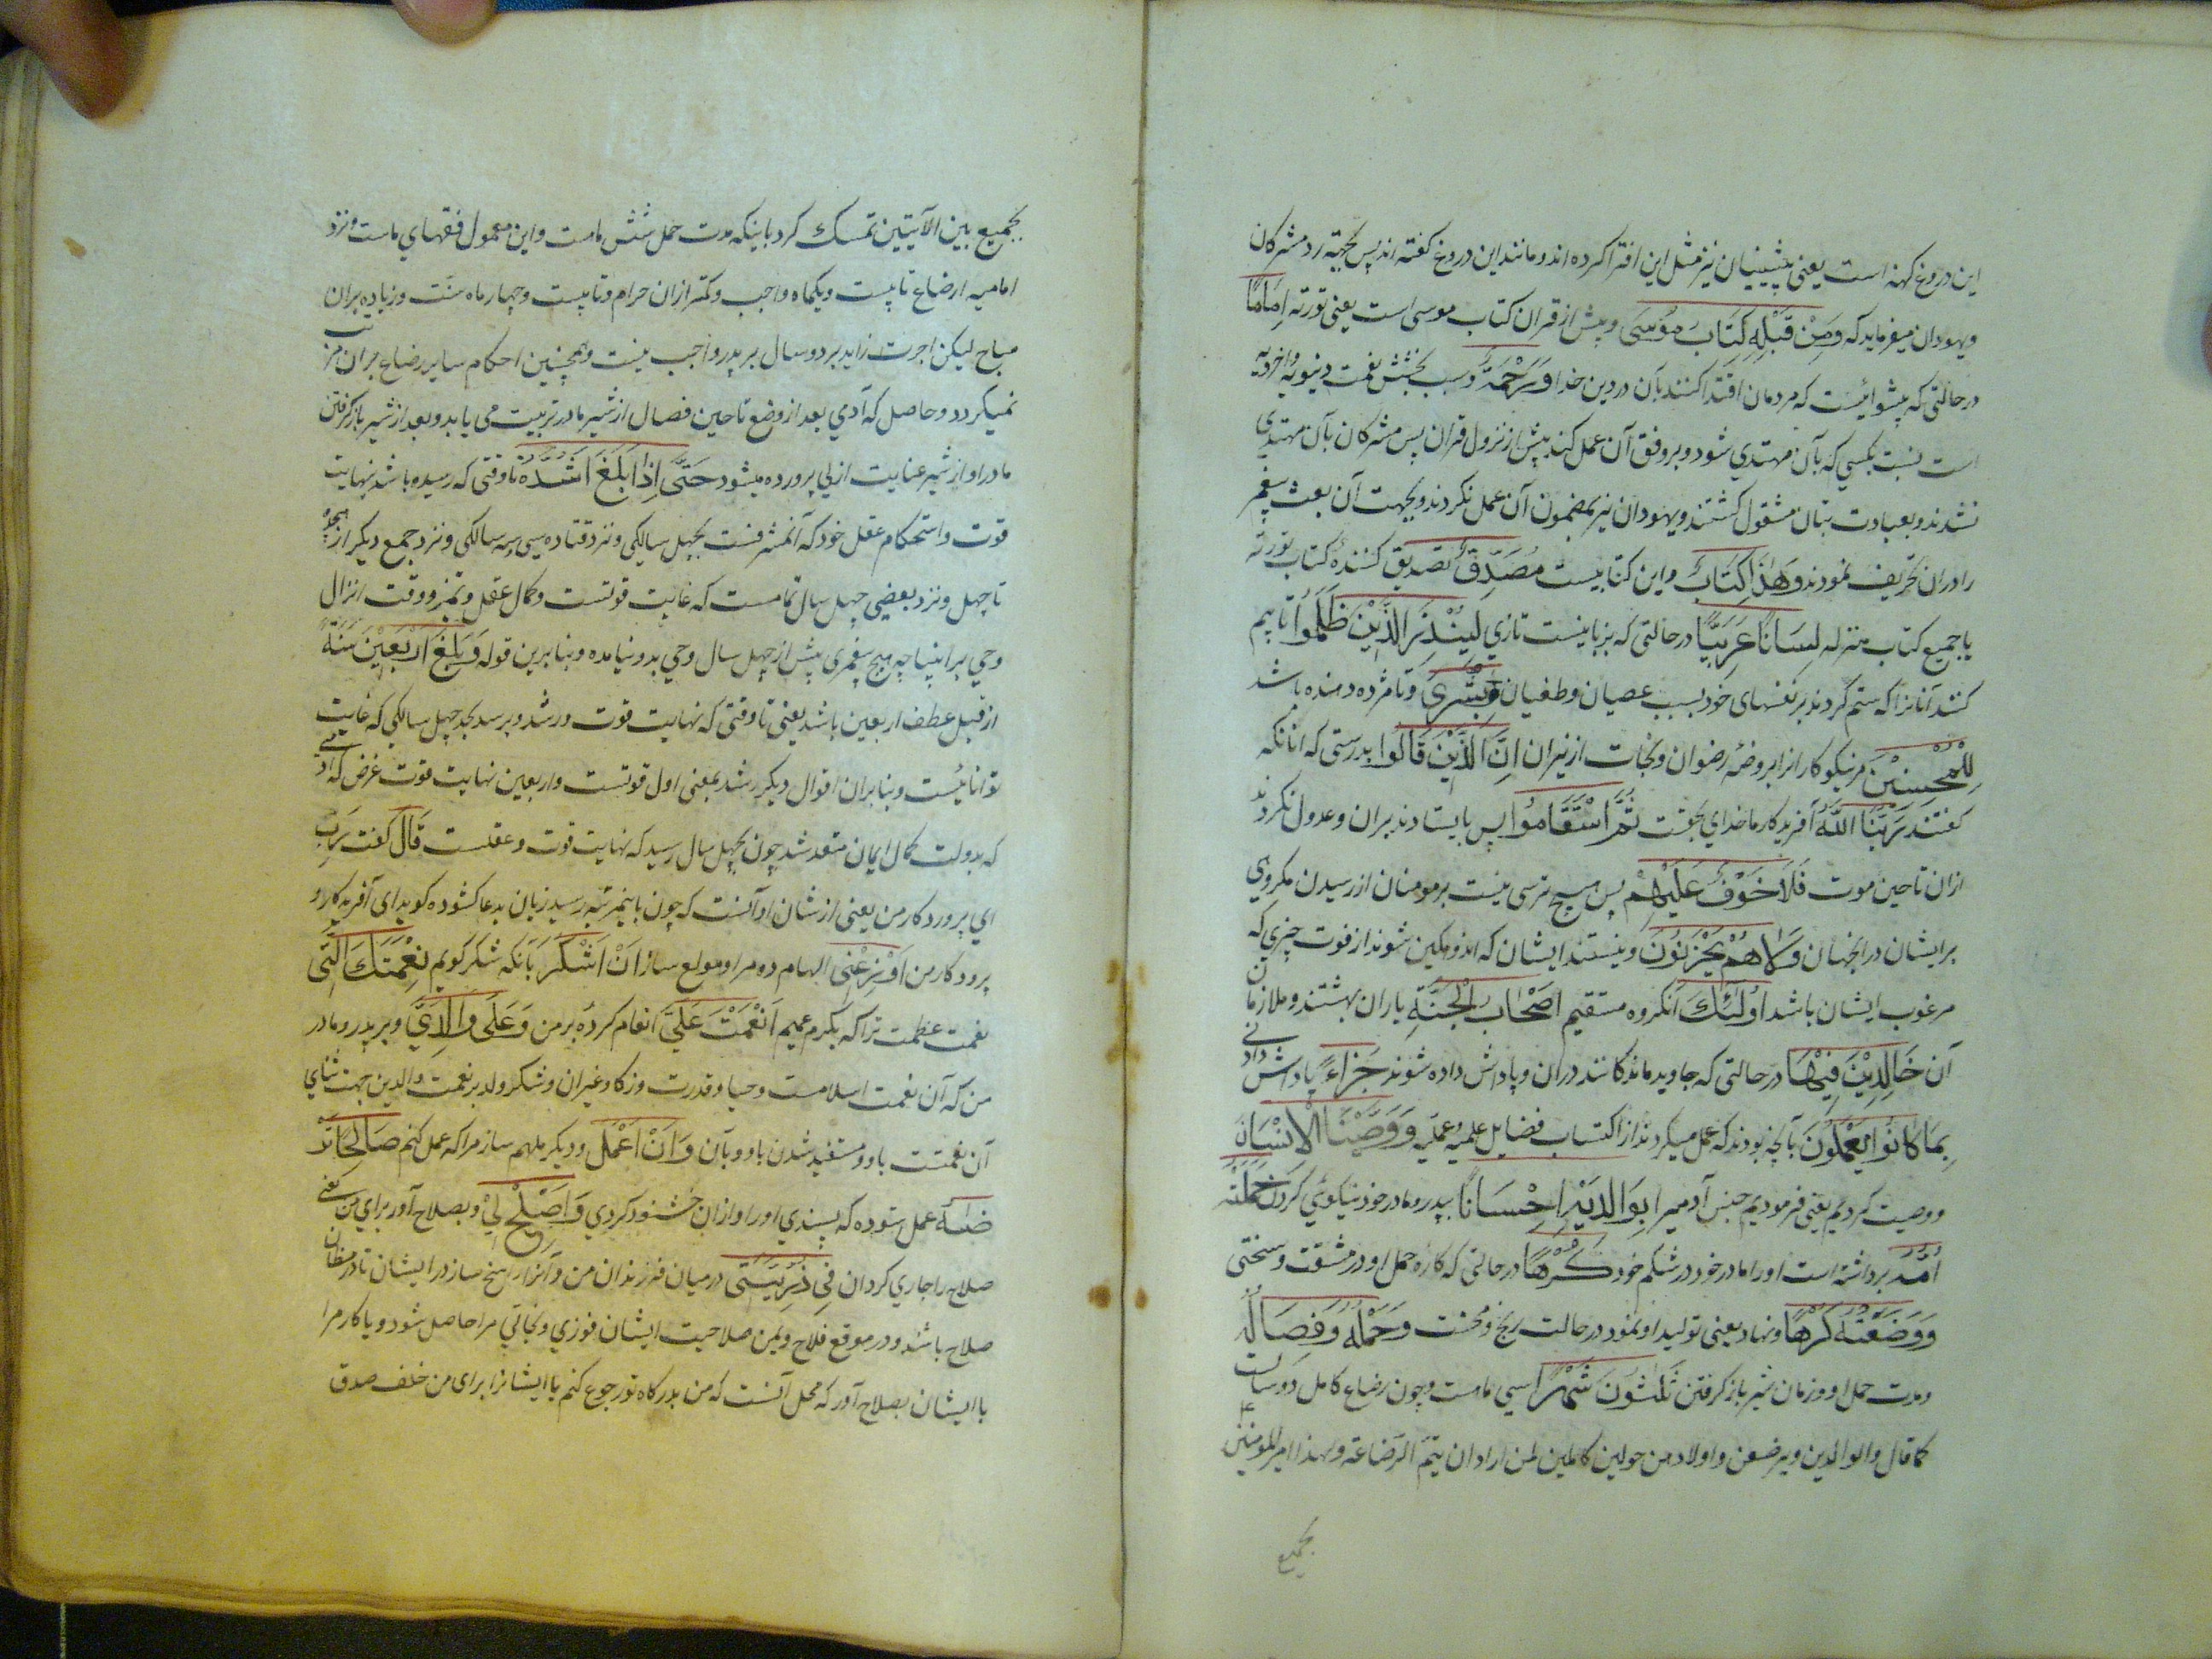 این دروغ کهنه است یعنی پیشینیان نیز مثل این افترا کرده اند و مانند این دروغ کفته اند پس بجهة رد مشرکان
ویهودان میفرماید که وَمِنْ قَبْلِهِ كِتَابُ مُوسَى وپیش از قران کتاب موسی است یعنی توریة اِمَامًا
در حالتی که پیشوائیست که مردمان اقتدا کنند بآن در دین خدا وَرَحْمَةً وسبب بخشش نعمت دنیویه واخرویه
است نسبت بکسی که بآن مهتدی شود وبر وفق آن عمل کند پیش از نزول قران پس مشرکان بآن مهتدی
نشدند وبعبادت بتان مشغول کشتند ویهودان نیز بمضمون آن عمل نکردند وبجهت آن بعث پیغمبر
را دران تحریف نمودند وَهٰذَا كِتَابٌ واین کتابیست مُصَدِّقٌ تصدیق کننده کتاب توریة
یا جمیع کتاب منزله لِسَانًا عَرَبِيًّا در حالتی که بزبانیست تازی لِيُنْذِرَ الَّذِيْنَ ظَلَمُوْا تا بیم
کنند آنانرا که ستم کردند بر نفسهای خود بسبب عصیان وطغیان وَبُشْرٰى وتا مژده دهنده باشد
لِلْمُحْسِنِيْنَ مر نیکوکارانرا بروضه رضوان ونجات از نیران اِنَّ الَّذِيْنَ قَالُوا بدرستی که انانکه
کفتند رَبُّنَا اللّٰهُ آفریدکار ما خدای بحقست ثُمَّ اسْتَقَامُوْا پس بایستادند بران وعدول نکردند
ازان تا حین موت فَلَا خَوْفٌ عَلَيْهِمْ پس هیچ ترسی نیست بر مومنان از رسیدن مکروهی
برایشان در انجهان وَلَا هُمْ يَحْزَنُوْنَ ونیستند ایشان که اندوهکین شوند از فوت چیزی که
مرغوب ایشان باشد اُولٰئِكَ انکروه مستقیم اَصْحَابُ الْجَنَّةِ یاران بهشتند وملازمان
آن خَالِدِيْنَ فِيْهَا در حالتی که جاوید ماندکانند دران وپاداش داده شوند جَزَاءً پاداش دادنی
بِمَا كَانُوْا يَعْمَلُوْنَ بآنچه بودند که عمل میکردند از اکتساب فضایل علمیه وعملیه وَوَصَّيْنَا الْاِنْسَانَ
ووصیت کردیم یعنی فرمودیم جنس آدمیرا بِوَالِدَيْهِ اِحْسَانًا بپدر ومادر خود نیکوئی کردن حَمَلَتْهُ
اُمُّهُ برداشته است اورا مادر خود در شکم خود كُرْهًا در حالتی که کاره حمل او در مشقت وسختی
وَوَضَعَتْهُ كُرْهًا ونهاد یعنی تولید او نمود در حالت رنج ومحنت وَحَمْلُهُ وَفِصَالُهُ
ومدت حمل او وزمان شیر باز کرفتن ثَلٰثُوْنَ شَهْرًا سی ماست وچون رضاع کامل دوسالست
کما قال والوالدین ویرضعن واولادهن حولین کاملین لمن اراد ان یتم الرضاعة ولهذا امیر المومنین
بجمیع
بجمیع بین الآیتین تمسک کرد باینکه مدت حمل شش ماست واین معمول فقهای ماست ونزد
امامیه ارضاع تا بیست ویکماه واجب وکمتر ازان حرام وتا بیست وچهار ماه سنت وزیاده بران
مباح لیکن اجرت زاید بر دو سال بر پدر واجب نیست وهمچنین احکام سایر رضاع بران مرتب
نمیکردد وحاصل که آدمی بعد از وضع تا حین فصال از شیر مادر تربیت می یابد وبعد از شیر باز کرفتن
مادر او از شیر عنایت ازلی پرورده میشود حَتّٰى اِذَا بَلَغَ اَشُدَّهُ تا وقتی که رسیده باشد نهایت
قوت واستحکام عقل خود که آنمشرفست بچهل سالکی ونزد قتاده سی وسه سالکی ونزد جمع دیکر از هجده
تا چهل ونزد بعضی چهل سال تمامست که غایت قوتست وکمال عقل وتمیز ووقت انزال
وحی بر انبیا چه هیچ پیغمبری پیش از چهل سال وحی بدو نیامده وبنا برین قوله وَبَلَغَ اَرْبَعِيْنَ سَنَةً
از قبل عطف اربعین باشد یعنی تا وقتی که نهایت قوت ورشد وبرسد بحد چهل سالکی که غایت
توانائیست وبنا بران اقوال دیکر رشد بمعنی اول قوتست واربعین نهایت قوت غرض که آدمی
که بدولت کمال ایمان متعد شد چون بچهل سال رسید که نهایت قوت وعقلست قَالَ کفت رَبِّ
ای پروردکار من یعنی از شان او آنست که چون باینمرتبه رسید زبان بدعا کشوده کوید ای آفریدکار و
پروردکار من اَوْزِعْنِيْ الهام ده مرا ومولع ساز اَنْ اَشْكُرَ بآنکه شکر کویم نِعْمَتَكَ الَّتِيْ
نعمت عظمت ترا که بکرم عمیم اَنْعَمْتَ عَلَيَّ انعام کردهٔ بر من وَعَلٰى وَالِدَيَّ وبر پدر ومادر
من که آن نعمت اسلامست وحیا وقدرت وزکا وغیران وشکر ولد بر نعمت والدین جهت ثنای
آن نعمتست باو ومستفید شدن باو وبآن وَاَنْ اَعْمَلَ ودیکر ملهم ساز مرا که عمل کنم صَالِحًا تَرْ
ضَاهُ عمل ستوده که پسندی اورا وازان خشنود کردی وَاَصْلِحْ لِيْ وبصلاح آور برای من یعنی
صلاح را جاری کردان فِيْ ذُرِّيَّتِيْ در میان فرزندان من وآنرا راسخ ساز در ایشان تا در مظان
صلاح باشد ودر موقع فلاح ویمن صلاحیت ایشان فوزی ونجاتی مرا حاصل شود ویا کار مرا
با ایشان بصلاح آور که محل آنست که من بدرکاه تو رجوع کنم یا ایشانرا برای من خلف صدق